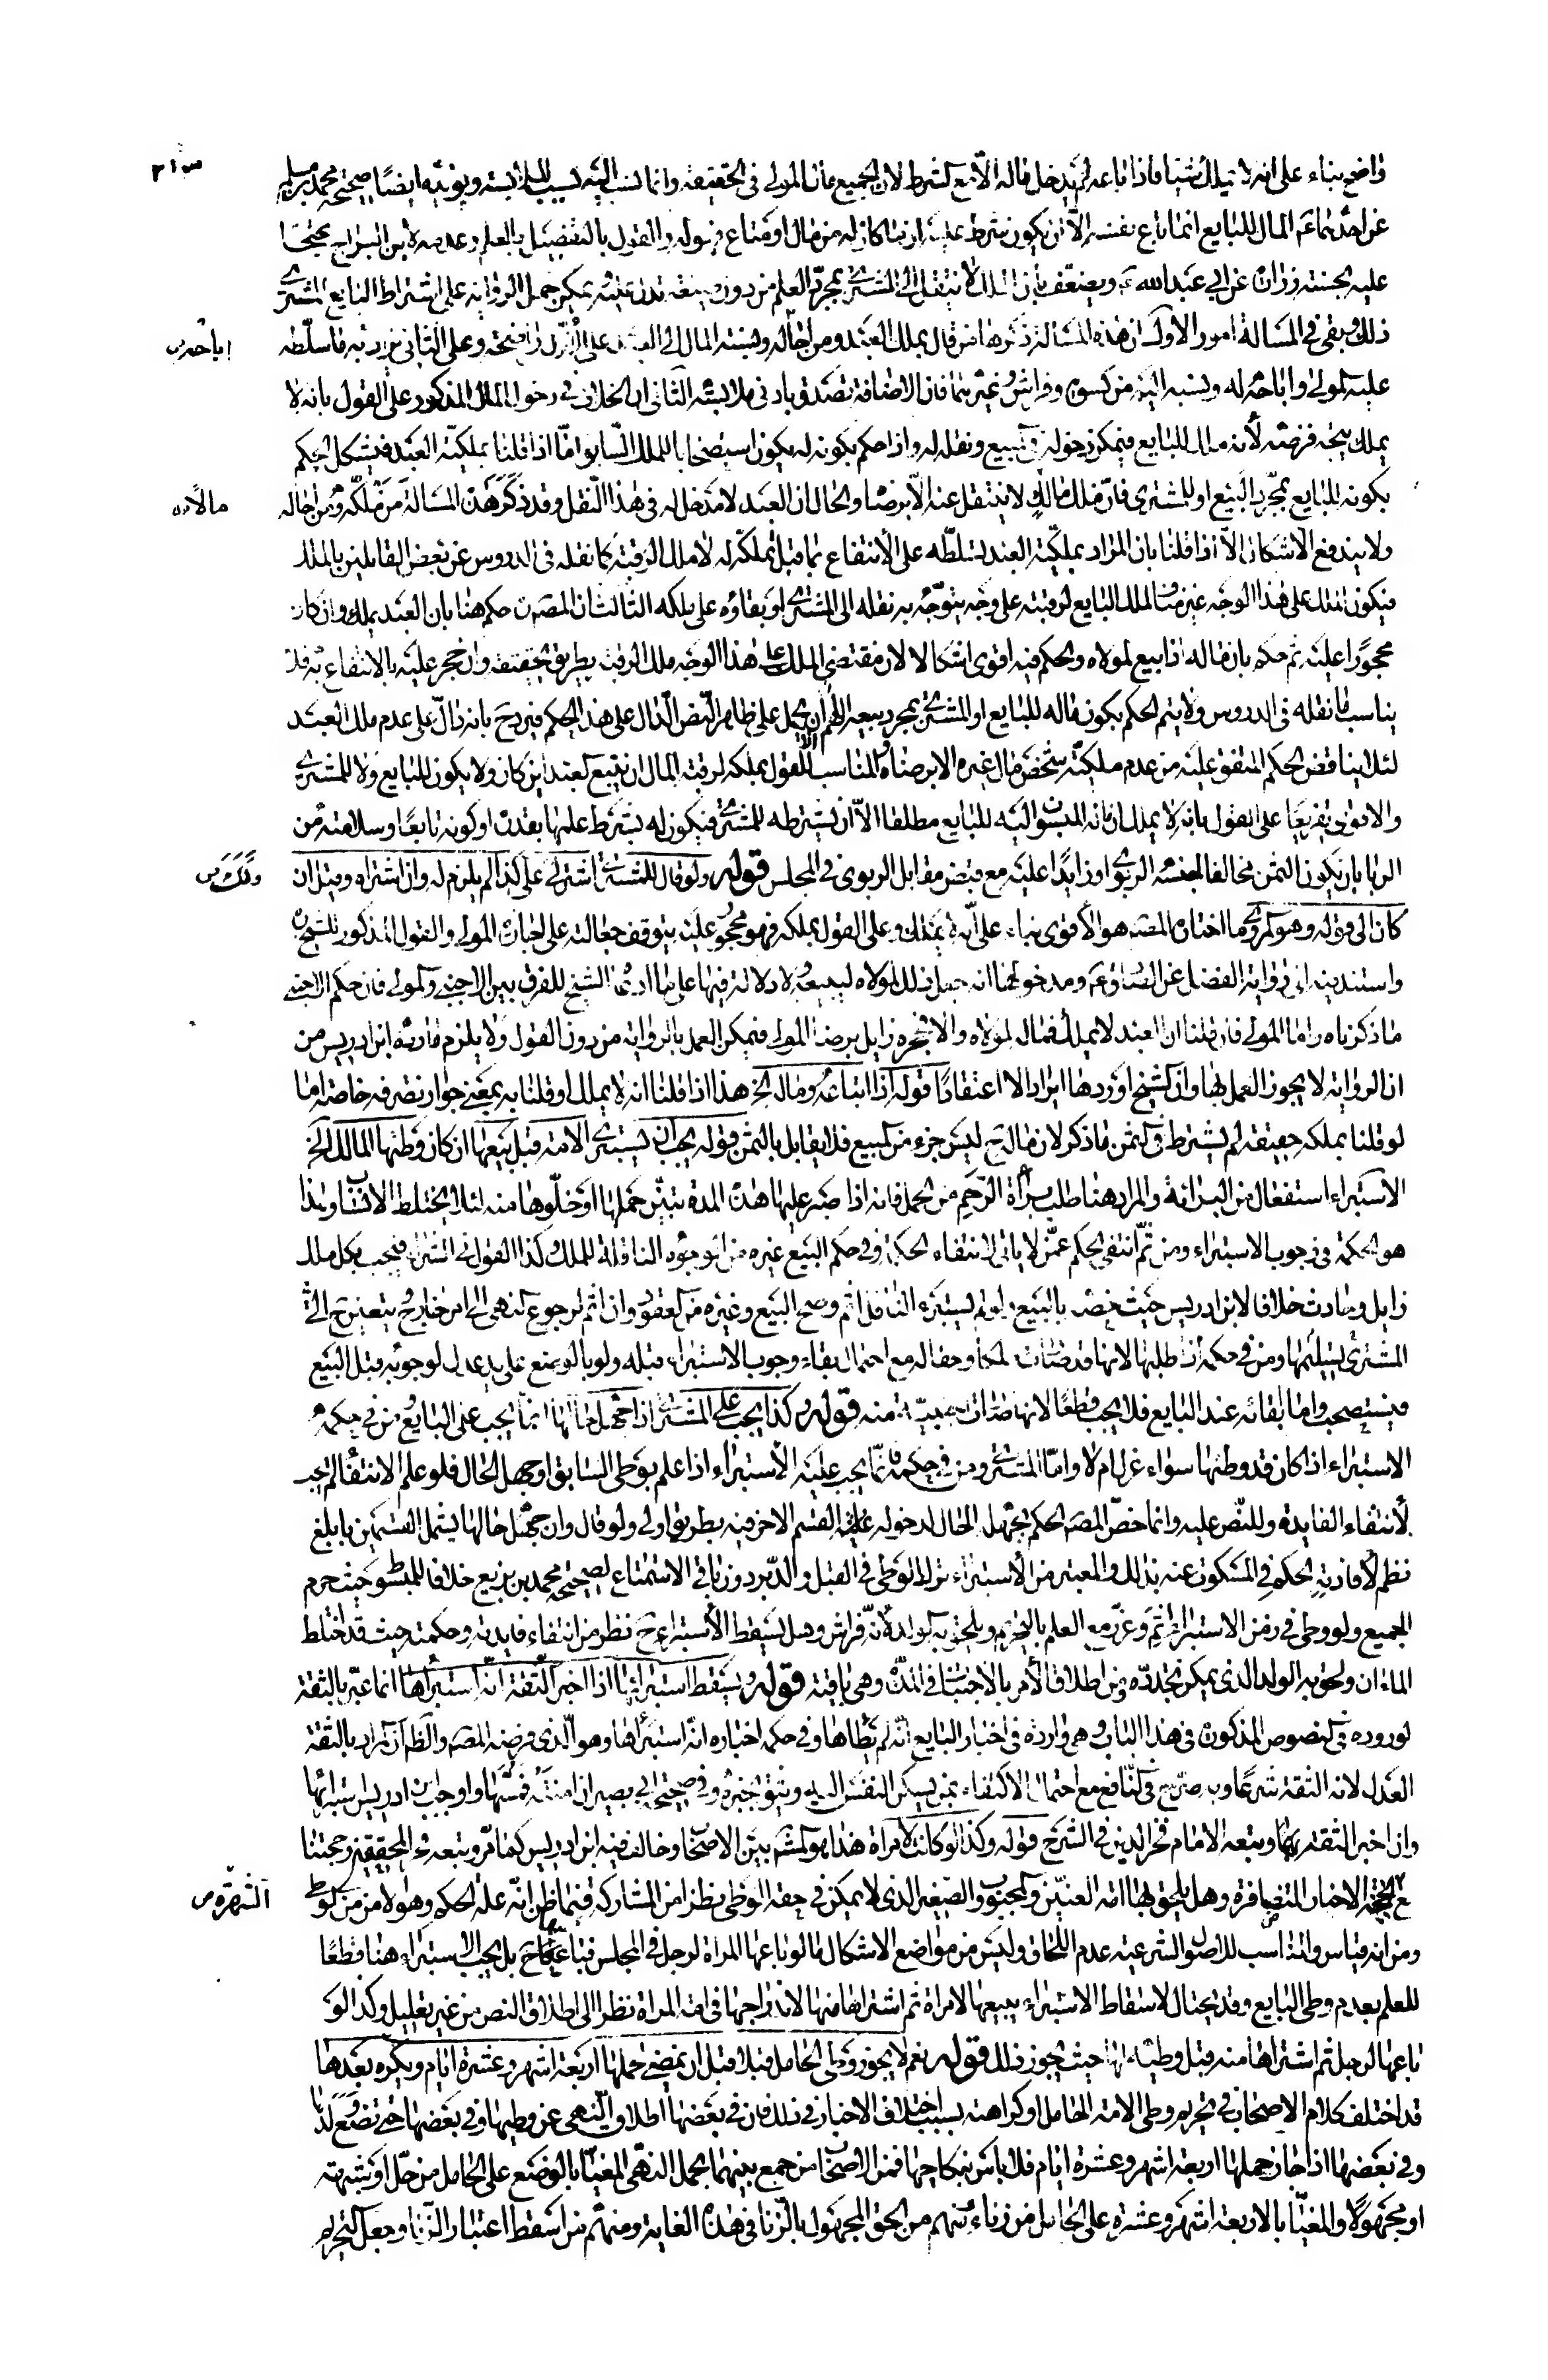 واضح بناء على انه لا يملك شيئا فاذا باعه لم يدخل ماله الا مع الشرط لان الجميع مال المولى فى الحقيقة وانما نسب اليه بسبب الملابسة ويؤيده ايضا صحيحة محمد بن مسلم
عن احدهما ع المال للبايع انما باع نفسه الا ان يكون شرط عليه ان ما كان له من مال او متاع فهو له والقول بالتفصيل بالعلم وعدمه لابن البراج محتجا
عليه بحسنة زرارة عن ابي عبد الله ع ويضعف بان الملك لا ينتقل الى المشترى بمجرد العلم من دون صيغة تدل عليه يمكن حمل الرواية على اشتراط البايع للمشترى
ذلك وبقى في المسألة امور الاول ان هذه المسألة ذكرها من قال بملك العبد ومن احاله ونسبة المال الى العبد على الاول واضحة وعلى الثانى يراد به ما سلطه
عليه المولى واباحه له ونسبه اليه من كسوة وفراش وغيرهما فان الاضافة تصدق بادنى ملابسة الثانى ان الخلاف في دخول المال المذكور على القول بانه لا
يملك يتجه فرضه لأنه مال للبايع فيمكن دخوله في المبيع ونقله له واذا حكم بكونه له يكون استصحابا للملك السابق وامّا اذا قلنا بملكية العبد فيشكل الحكم
بكونه للبايع بمجرد البيع او للمشترى فان ملك مالك لا ينتقل عنه الا برضاه والحال ان العبد لا مدخل له في هذا النقل وقد ذكر هذه المسألة من ملّكه ومن احاله
ولا يندفع الاشكال الا اذا قلنا بان المراد بملكية العبد تسلطه على الانتفاع بما قبل تملكه له لا ملك الرقبة كما نقله فى الدروس عن بعض القايلين بالملك
فيكون الملك على هذا الوجه غير مناف لملك البايع لرقبته على وجه يتوجه به نقله الى المشترى او بقاؤه على ملكه الثالث ان المصنف حكم هنا بان العبد يملك وان كان
محجورا عليه ثم حكم بان ماله اذا بيع لمولاه والحكم فيه اقوى اشكالا لان مقتضى الملك على هذا الوجه ملك الرقبة بطريق الحقيقة وان حجر عليه بالانتفاع به فلا
يناسب ما نقله فى الدروس ولا يتم الحكم بكون ماله للبايع او المشترى بمجرد بيعه اللهم الا ان يحمل على ظاهر النص الدال على هذا الحكم فيرد ح بانه دال على عدم ملك العبد
لئلا يناقض الحكم المتفق عليه من عدم ملكية شخص مال غيره الا برضاه والمناسب للقول بملكه لرقبة المال ان يتبع العبد اين كان ولا يكون للبايع ولا للمشترى
والاقوى تفريعا على القول بانه لا يملك ان ماله المنسوب اليه للبايع مطلقا الا ان يشترطه للمشترى فيكون له بشرط علمهما بقدره او كونه تابعا وسلامته من
الربا بان يكون الثمن مخالفا لجنسه الربوى او زايدا عليه مع قبض مقابل الربوى في المجلس قوله ولو قال للمشترى اشترنى على كذا لم يلزم له وان اشتراه وقيل ان
كان الى قوله وهو المروى ما اختاره المصنف هو الأقوى بناء على انه لا يملك وعلى القول بملكه فهو محجور عليه يتوقف جعالته على اجازة المولى والقول المذكور للشيخ ره
واستند فيه الى رواية الفضل عن الصادق ع ومدخولها انه جعل ذلك لمولاه ليبيعه ولا دلالة فيها على ما ادعاه الشيخ للفرق بين الاجنبى والمولى فان حكم الاجنبى
ما ذكرناه واما المولى فان قلنا ان العبد لا يملك فمال لمولاه والا فحجره زايل برضا المولى فيمكن العمل بالرواية من دون القول ولا يلزم ما رده ابن ادريس من
ان الرواية لا يجوز العمل بها وان الشيخ اوردها ايرادا لا اعتقادا قوله اذا ابتاعه وماله الخ هذا اذا قلنا انه لا يملك او قلنا به بمعنى جواز تصرفه خاصة اما
لو قلنا بملكه حقيقة لم يشترط في الثمن ما ذكر لان ماله ح ليس جزء من المبيع فلا يقابل بالثمن قوله يجب ان يستبرئ الامة قبل بيعها ان كان وطئها المالك الخ
الاستبراء استفعال من البراءة والمراد هنا طلب براءة الرحم من الحمل فانه اذا صبر عليها هذه المدة تبين حملها او خلوها منه لئلا يختلط الانساب وهذا
هو الحكمة في وجوب الاستبراء ومن ثم انتفى الحكم عمن لا ياتى لانتفاء الحكمة وفي حكم البيع غيره من الوجوه الناقلة للملك وكذا القول في الشراء فيجب بكل ملك
زايل وحادث خلافا لابن ادريس حيث خصه بالبيع ولو لم يستبرء الناقل اثم وصح البيع وغيره من العقود وان اثم لرجوع النهى الى امر خارج يتعين ح الى
المشترى تسليمها ومن فى حكمه اذا طلبها لانها قد صارت ملكا وحقا له مع احتمال بقاء وجوب الاستبراء قبله ولو بالوضع على يد عدل لوجوبه قبل البيع
فيستصحب واما بقائه عند البايع فلا يجب قطعا لانها صارت اجنبية منه قوله وكذا يجب على المشترى اذا جهل حالها انما يجب على البايع ومن في حكمه
الاستبراء اذا كان قد وطئها سواء عزل ام لا واما المشترى ومن في حكمه فانما يجب عليه الاستبراء اذا علم بوطى السابق او جهل الحال فلو علم الانتفاء لم يجب
لأنتفاء الفايدة وللنص عليه وانما خص المصنف الحكم بجهل الحال لدخول القسم الاخر فيه بطريق اولى ولو قال وان جهل حالها ليشمل القسمين بابلغ
نظم لأفادته الحكم في المسكوت عنه بذلك والمعتبر من الأستبراء ترك الوطى فى القبل والدبر دون باقى الاستمتاع لصحيحة محمد بن بزيع خلافا للمبسوط حيث حرم
الجميع ولو وطى في زمن الاستبراء اثم وعزر مع العلم بالتحريم ويلحق به الولد لأنه فراش وهل يسقط الأستبراء ح نظر من انتفاء فايدته وحكمته حيث قد اختلط
الماءان ولحق به الولد الذى يمكن تجدده ومن اطلاق الأمر بالاجتناب في المدة وهى باقية قوله ويسقط استبراؤها اذا اخبر الثقة انه استبرأها انما عبر بالثقة
لوروده في النصوص المذكورة فى هذا الباب وهى واردة فى اخبار البايع انه لم يطاها وفي حكمه اخباره انه استبرأها وهو الذى فرضه المصنف والظ ان المراد بالثقة
العدل لانه الثقة شرعا وبه صرح فى النافع مع احتمال الاكتفاء بمن يسكن النفس اليه ويثق بخبره وفي صحيحة ابى بصير ان امنته فمسها واوجب ابن ادريس استبرائها
وان اخبر الثقة بها وتبعه الامام فخر الدين في الشرح قوله وكذا لو كانت لامراة هذا هو المشهور بين الاصحاب وخالف فيه ابن ادريس كما مر وتبعه فخر المحققين وحجتنا
ع الحجة الاخبار المتضافرة وهل يلحق بها امة العنين والمجبوب والصغير الذى لا يمكن في حقه الوطى نظر من المشاركة فيما ظن انه علة الحكم وهو الامن من الوطى
ومن انه قياس والمناسب للاصول الشرعية عدم اللحاق وليس من مواضع الاشكال ما لو باعها المراة لرجل في المجلس فباعها ح بل يجب الاستبراء هنا قطعا
للعلم بعدم وطى البايع وقد يحتال لاسقاط الاستبراء ببيعها لامراة ثم اشترائها منها لاندراجها فى امة المراة نظرا الى اطلاق النص من غير تعليل وكذا لو
باعها لرجل ثم اشتراها منه قبل وطئه لها حيث يجوز ذلك قوله نعم لا يجوز وطى الحامل قبلا قبل ان يمضى لحملها اربعة اشهر وعشرة ايام ويكره بعدها
قد اختلف كلام الاصحاب في تحريم وطى الامة الحامل او كراهته بسبب اختلاف الاخبار في ذلك فان في بعضها اطلاق النهى عن وطيها وفي بعضها حتى تضع ولدها
وفي بعضها اذا جاز حملها اربعة اشهر وعشرة ايام فلا باس بنكاحها فمن الاصحاب من جمع بينهما بحمل النهى المغيا بالوضع على الحامل من حل او شبهة
او مجهولا والمغيا بالاربعة اشهر وعشرة على الحامل من زناء ومنهم من الحق المجهول بالزنا في هذه الغاية ومنهم من اسقط اعتبار الزنا وجعل التحريم